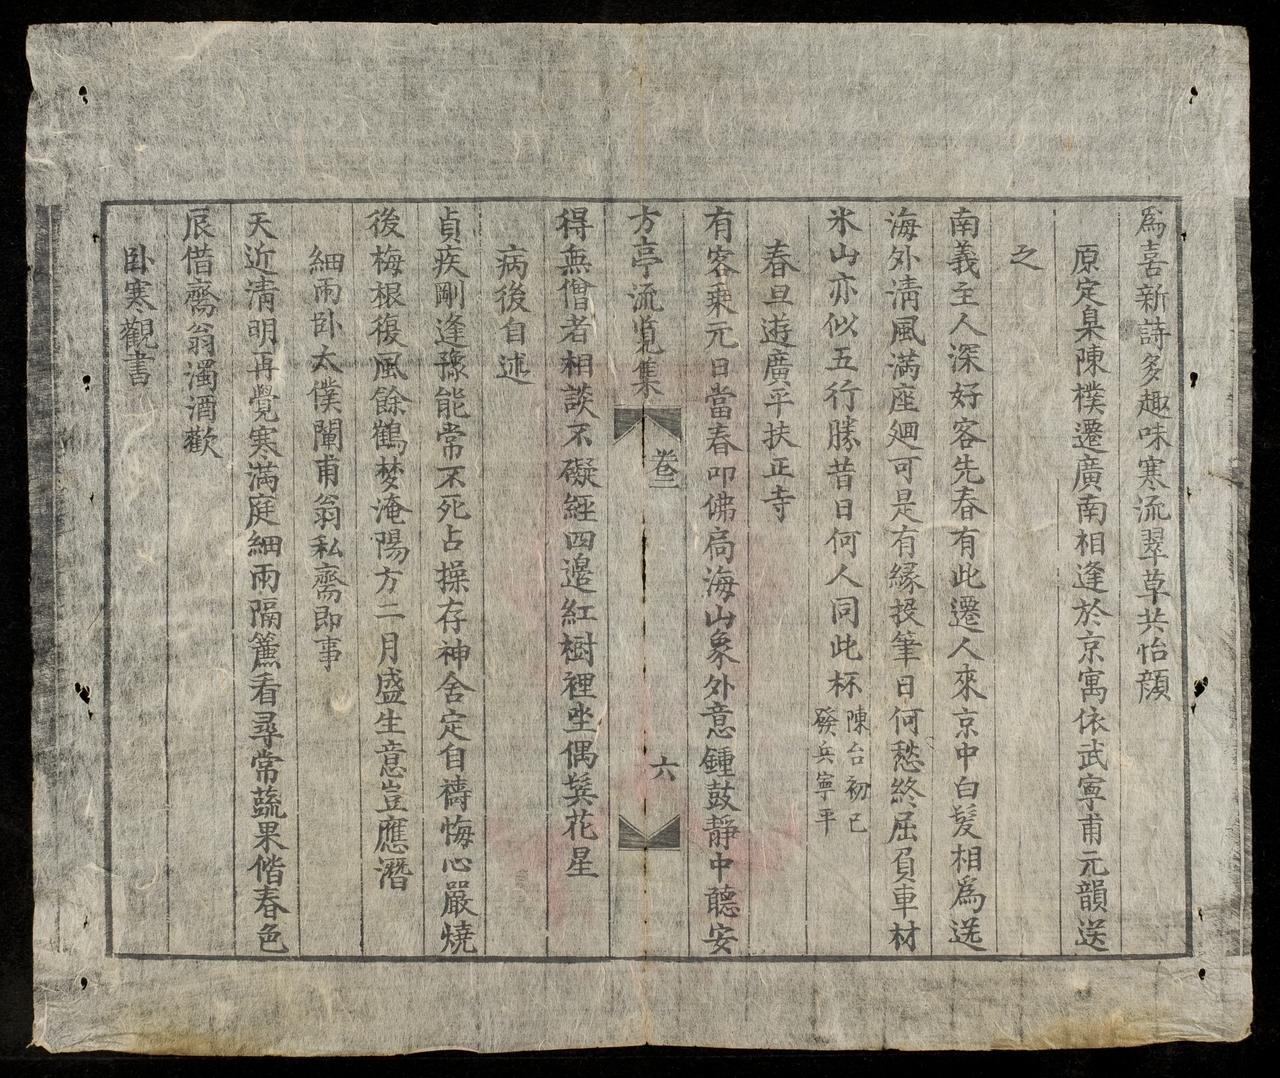 爲喜新詩多趣味寒流翠草共怡顔
原定臬陳樸遷廣南相逢於京寓依武寧甫元韻送
之
南義主人深好客先春有此遷人來京中白髮相爲送
海外淸風滿座廻可是有緣投筆日何愁終屈負車材
米山亦似五行勝昔日何人同此杯
陳台初已
發兵寧平
春旦遊廣平扶正寺
有客乘元日當春叩佛局海山象外意鍾鼓靜中聽安
方亭流览集
卷三
六
得無僧者相談不礙經四邊紅樹裡坐偶鬂花星
病後自述
貞疾剛逢豫能常不死占操存神舍定自禱悔心嚴燒
後梅根復風餘鶴梦淹陽方二月盛生意豈應潛
細雨卧太僕闡甫翁私齋即事
天近淸明再覺寒滿庭細雨隔簾看尋常蔬果偕春色
辰借齋翁濁酒歡
卧寒觀書